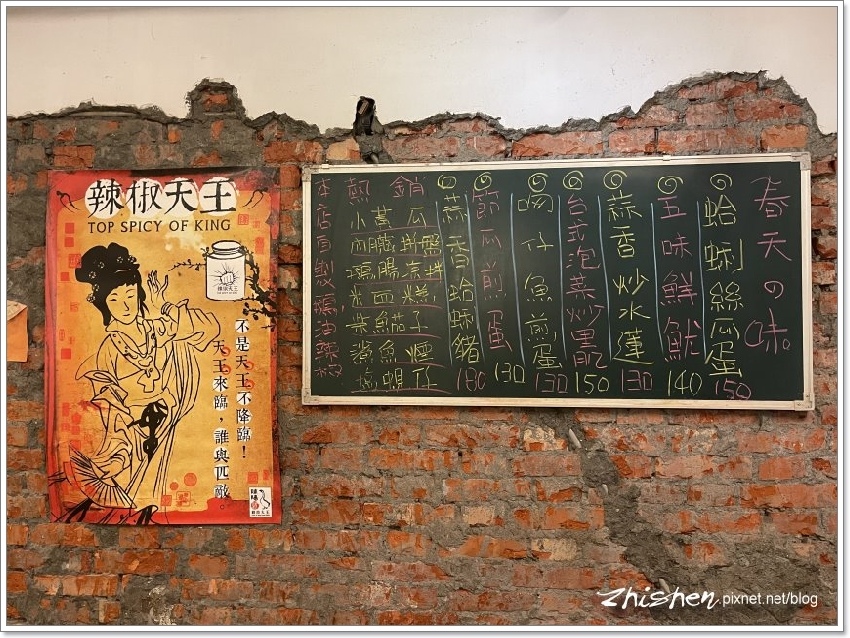 辣椒天王
TOP SPICY OF KING
不是天王不降臨！
天王來臨，誰與匹敵。
春天の味
蛤蜊絲瓜蛋 150
五味鮮魷 140
蒜香炒水蓮 130
台式泡菜炒黑 150
吻仔魚煎蛋 130
節瓜煎蛋 130
蒜香蛤蜊豬 180
熱銷
小黃瓜
內臟拼盤
鵝腸涼拌
米血糕
柴魚茄子
鯊魚煙
蜆仔
本店自製鵝油辣椒
zhishen.pixnet.net/blog